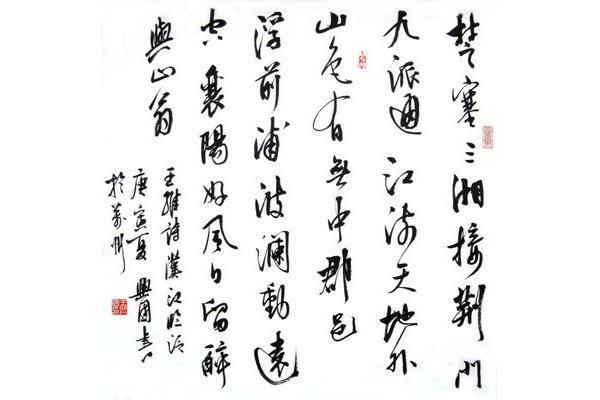 楚塞三湘接荆門
九派通江流天地外
山色有無中郡邑
浮前浦波瀾動遠
空襄陽好風日留醉
與山翁
王維詩漢江临泛
庚寅夏興国書
於萬州